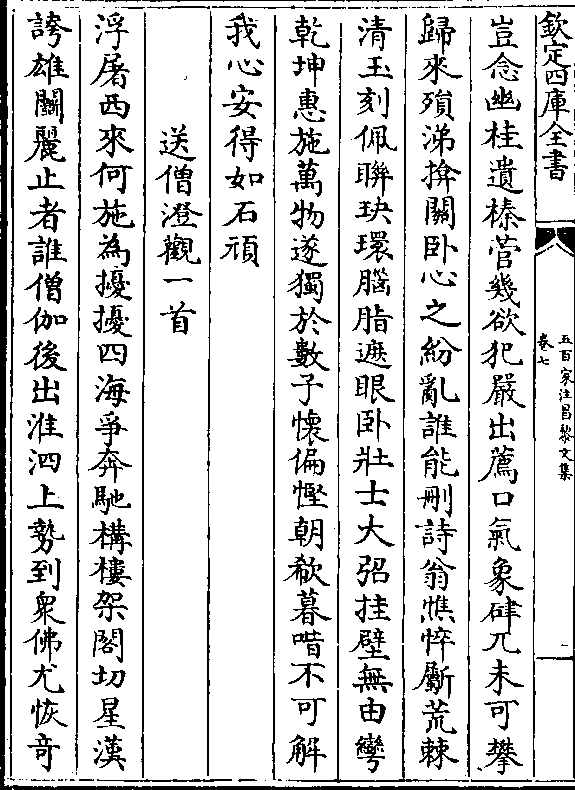 欽定四庫全書
五百家注昌黎文集
卷七
豈念幽桂遺榛菅幾欲犯嚴出薦口氣象硉兀未可攀
歸來殞涕揜關臥心之紛亂誰能刪詩翁憔悴斸荒棘
清玉刻佩聯玦環腦脂遮眼臥壯士大弨挂壁無由彎
乾坤惠施萬物遂獨於數子懷偏慳朝欷暮唶不可解
我心安得如石頑
送僧澄觀一首
浮屠西來何施為擾擾四海爭奔馳構樓架閣切星漢
誇雄鬬麗止者誰僧伽後出淮泗上勢到衆佛尤恢奇